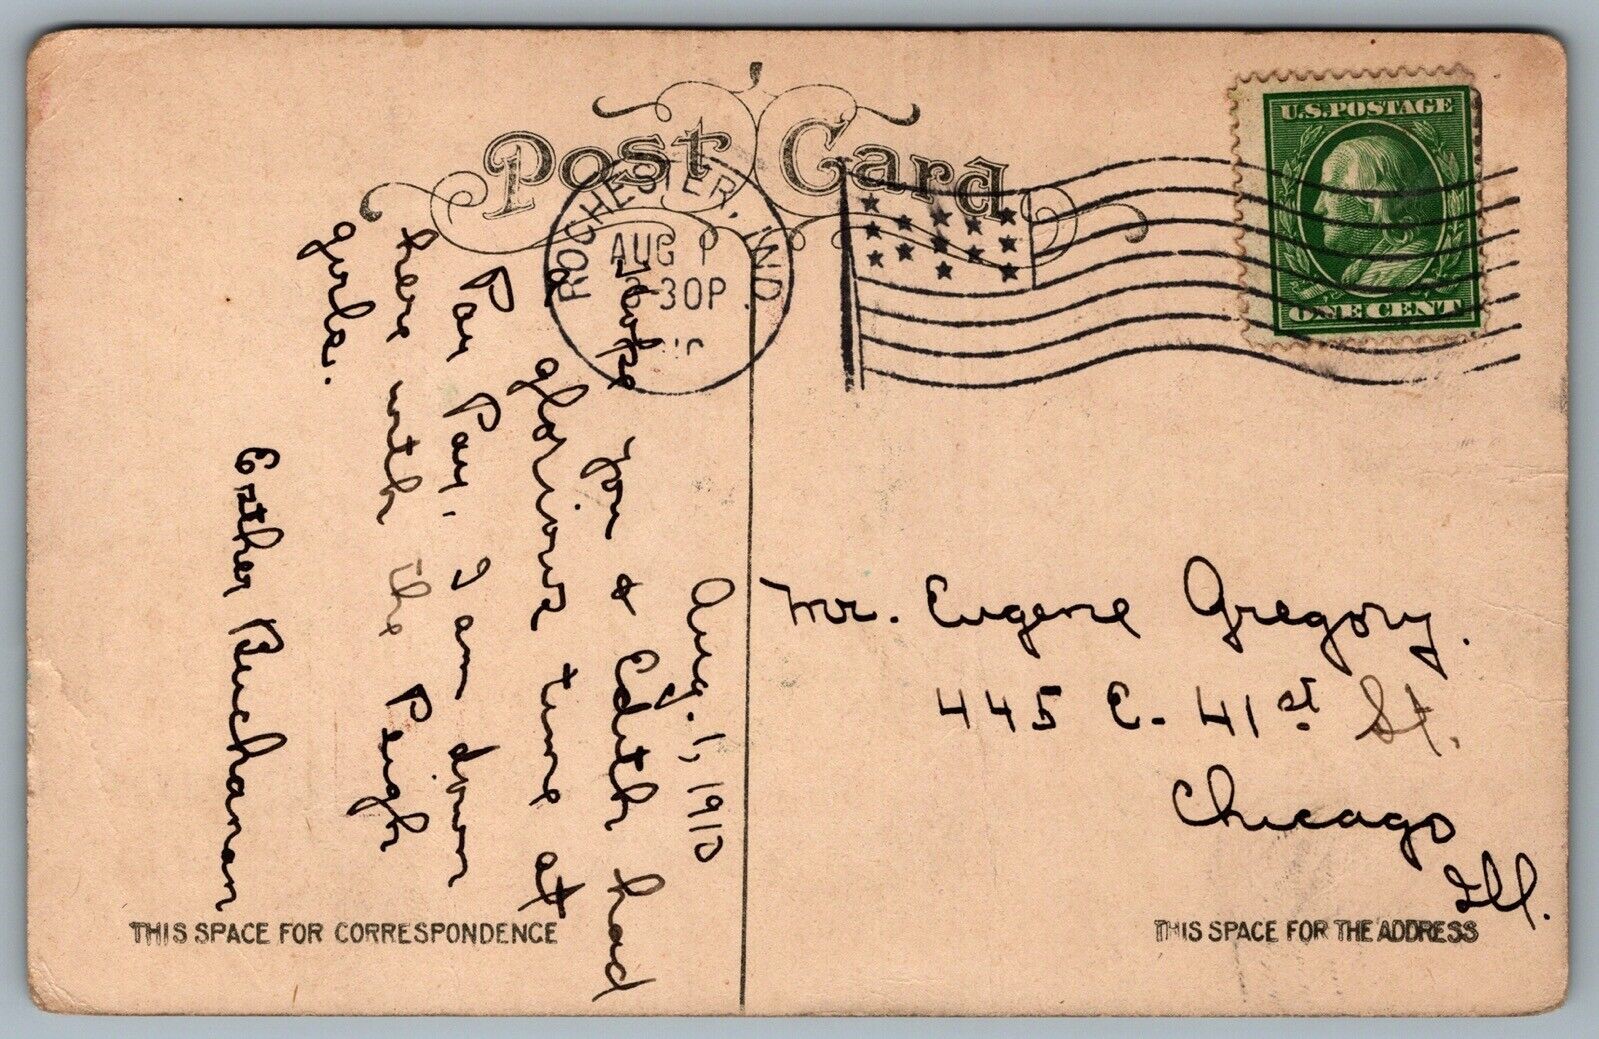 Post Card
ROCHESTER, IND.
AUG 1
6-30P
U.S. POSTAGE
ONE CENT
Aug. 1, 1910
Hope you & Edith had
a glorious time at
Paw Paw. I am down
here with the Peigh
girls.
Esther Buchanan
Mr. Eugene Gregory.
445 E. 41st St.
Chicago
Ill.
THIS SPACE FOR CORRESPONDENCE
THIS SPACE FOR THE ADDRESS